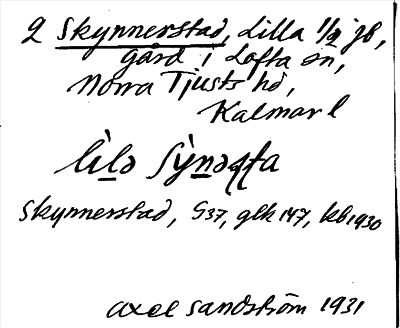 2 Skynnerstad, Lilla 1/2 jb,
gård i Lofta sn,
Norra Tjusts hd,
Kalmar l
Skynnerstad, S37, glk 147, kb 1930
Axel Sandström 1931